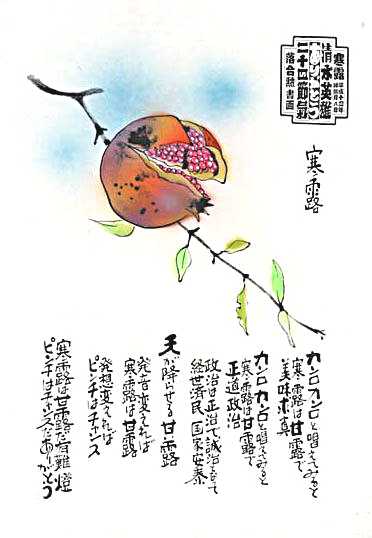 寒露
清水英雄
ありがとう
二十四節氣
落合勲書画
寒露
カンロカンロと唱えてみると
寒露は甘露で
美味求真
カンロカンロと唱えてみると
寒露は甘露で
正道政治
政治は正治で誠治なて
経世済民国家安泰
天が降らせる甘露
発音変えれば
寒露は甘露
発想変えれば
ピンチはチャンス
寒露は甘露だ有難燈
ピンチはチャンスだありがとう